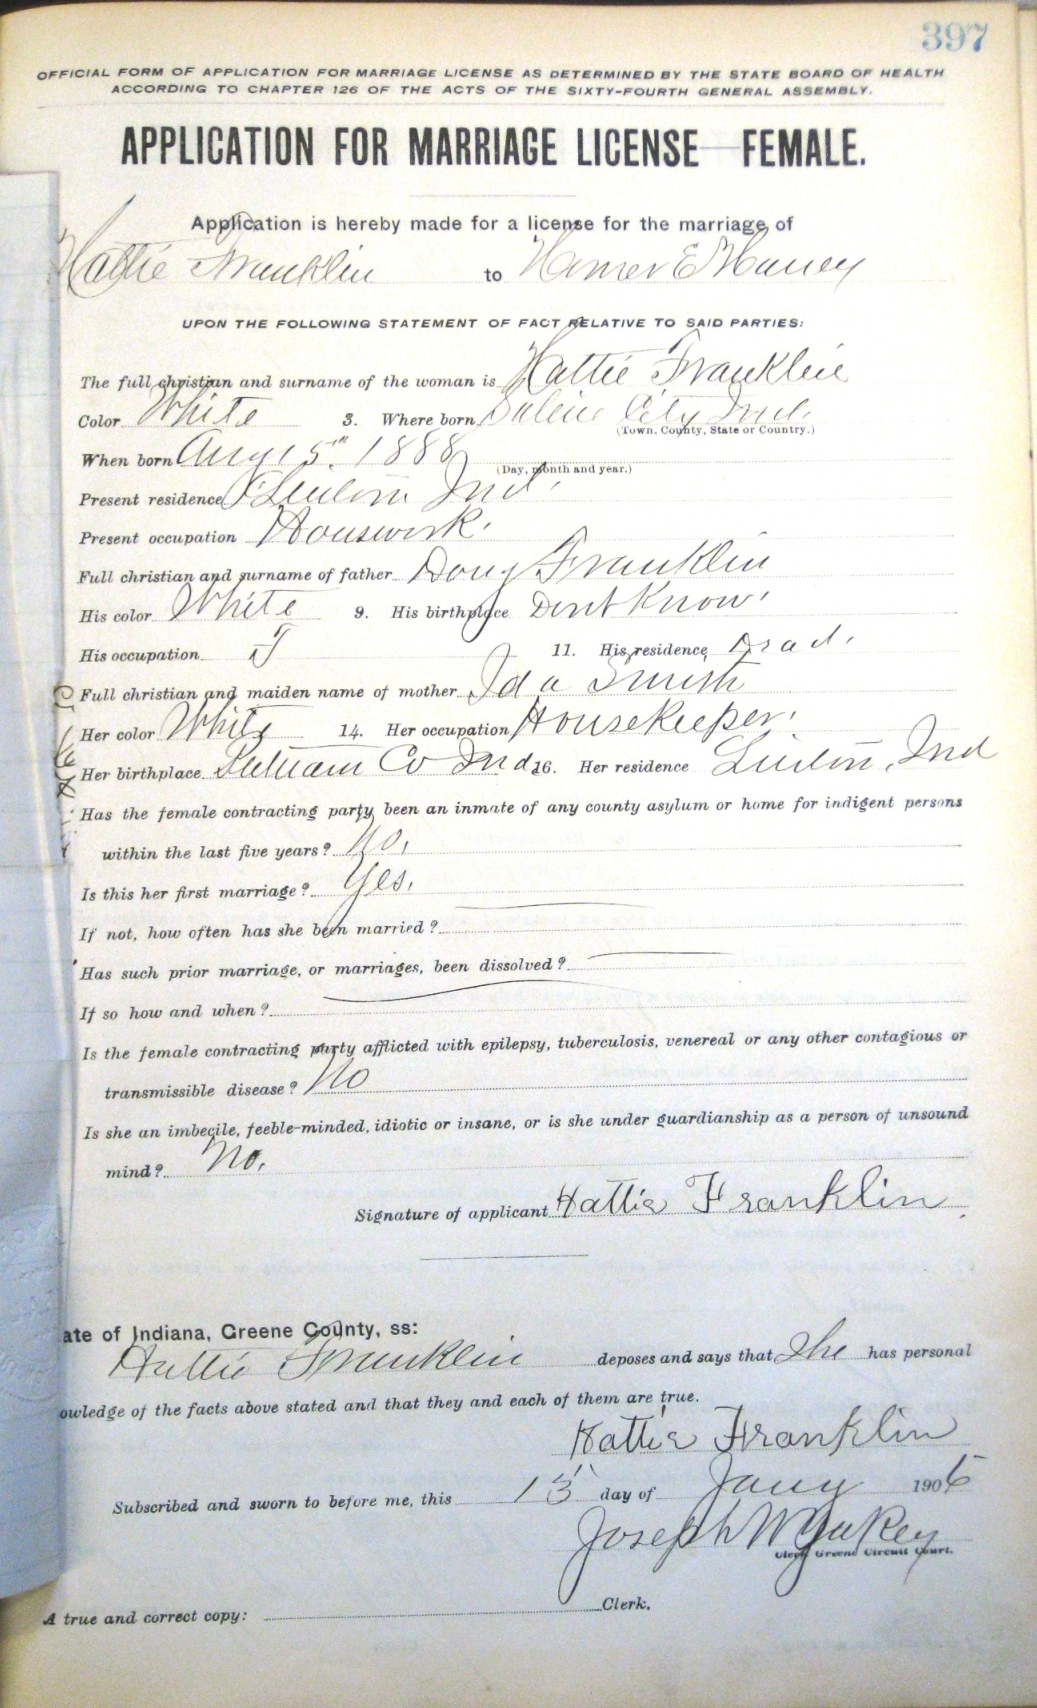 397
OFFICIAL FORM OF APPLICATION FOR MARRIAGE LICENSE AS DETERMINED BY THE STATE BOARD OF HEALTH
ACCORDING TO CHAPTER 126 OF THE ACTS OF THE SIXTY-FOURTH GENERAL ASSEMBLY.
APPLICATION FOR MARRIAGE LICENSE—FEMALE.
Application is hereby made for a license for the marriage of
Hattie Franklin to Homer E Haney
UPON THE FOLLOWING STATEMENT OF FACT RELATIVE TO SAID PARTIES:
The full christian and surname of the woman is Hattie Franklin
Color White 3. Where born City Ind.
(Town, County, State or Country.)
When born Aug 15th 1888
(Day, month and year.)
Present residence Linton Ind.
Present occupation Houswork.
Full christian and surname of father Doug Franklin
His color White 9. His birthplace Dont Know.
His occupation 11. His residence Dead.
Full christian and maiden name of mother Ida Smith
Her color White 14. Her occupation Housekeeper.
Her birthplace Putnam Co Ind 16. Her residence Linton, Ind
Has the female contracting party been an inmate of any county asylum or home for indigent persons
within the last five years? No.
Is this her first marriage? Yes.
If not, how often has she been married?
Has such prior marriage, or marriages, been dissolved?
If so how and when?
Is the female contracting party afflicted with epilepsy, tuberculosis, venereal or any other contagious or
transmissible disease? No
Is she an imbecile, feeble-minded, idiotic or insane, or is she under guardianship as a person of unsound
mind? No.
Signature of applicant Hattie Franklin
ate of Indiana, Greene County, ss:
Hattie Franklin deposes and says that She has personal
owledge of the facts above stated and that they and each of them are true.
Hattie Franklin
Subscribed and sworn to before me, this 13" day of Jany 1906
Joseph W Yakey
Clerk Greene Circuit Court.
A true and correct copy: Clerk.